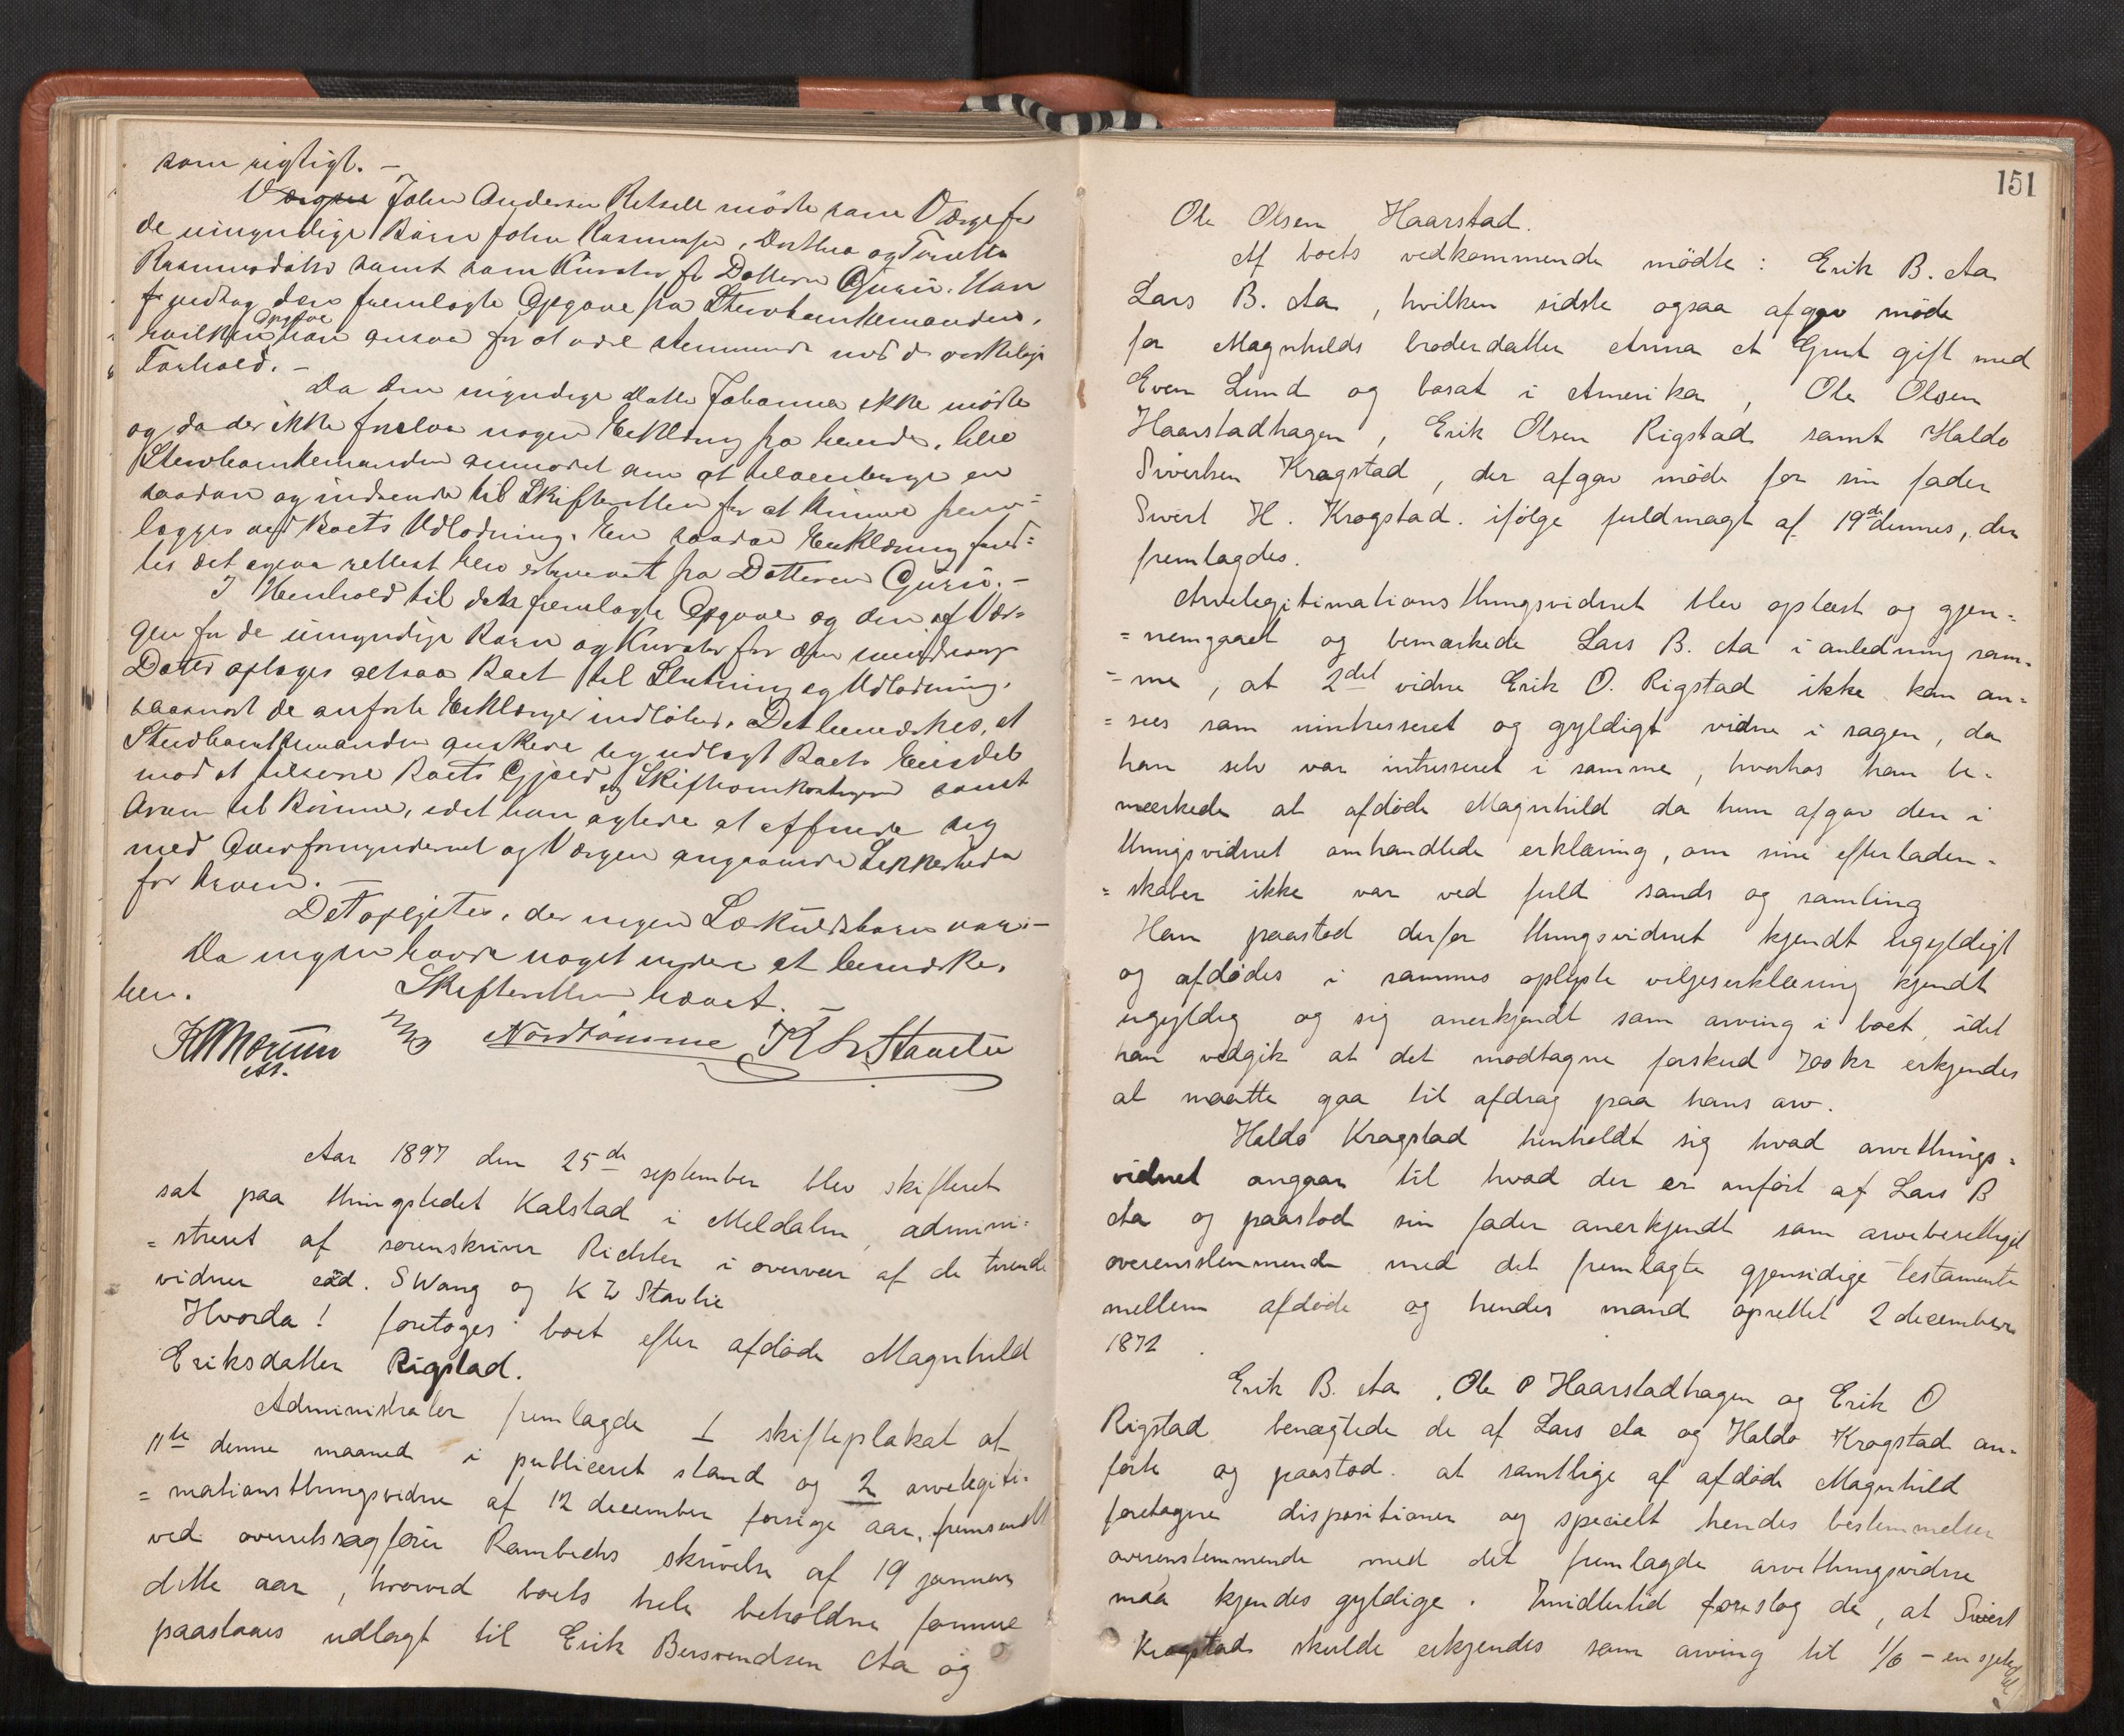 som rigtigt. –
Værgen John Andersen Retsell mødte som Værge for
de umyndige Børn John Rasmussen, Dorthea og
Rasmusdøttre samt som Kurator for Datteren Guru. Han
den fremlagte Opgave fra Stervboenkemanden,
hvilken Opgave han ansaa for at være stemmende med de virkelige
Forhold. –
Da den myndige Datter Johanna ikke mødte
og da der ikke forelaa nogen Erklæring fra hende, blev
Stervboenkemanden anmodet om at tilveiebringe en
saadan og indsende til Skifteretten for at kunne frem=
lægges ved Boets Udlodning. En saadan Erklæring
det ogsaa rettest blev erhvervet fra Datteren Guru. –
I Henhold til den fremlagte Opgave og den af Vær=
gen for de umyndige Børn og Kurator for den
Datter optages altsaa Boet til Slutning og Udlodning,
saasnart de anførte Erklæringer indløber. Det bemærkes, at
Stervboenkemanden ønskede sig udlagt Boets Eiendele
mod at tilsvare Boets Gjæld og Skifteomkostninger samt
Arven til Børnene, idet han agtede at affinde sig
med Overformynderiet og Værgen angaaende Sikkerhed
for Arven. –
Det oplystes, der ingen Særkuldsbørn var. –
Da ingen havde noget videre at bemærke,
blev Skifteretten hævet. –
Nordtømme K L Stavlie
Aar 1897 den 25de september blev skifteret
sat paa thingstedet Kalstad i Meldalen, admini=
=streret af sorenskriver Richter i overvær af de tvende
vidner eåd. S Wang og K L Stavlie
Hvorda! foretoges boet efter afdøde Magnhild
Eriksdatter Rigstad.
Administrator fremlagde 1 skifteplakat af
11te denne maaned i publiceret stand og 2 arvelegiti=
=mationsthingsvidne af 12 december forrige aar, fremsendt
ved overretssagfører Rambechs skrivelse af 19 januar
dette aar, hvorved boets hele beholdne formue
paastaaes udlagt til Erik Bersvendsen Aa og
151
Ole Olsen Haarstad.
Af boets vedkommende mødte: Erik B. Aa
Lars B. Aa, hvilken sidste ogsaa afgav møde
for Magnhilds broderdatter Anna et Gurt gift med
Even Lund og bosat i Amerika, Ole Olsen
Haarstadhagen, Erik Olsen Rigstad samt Haldo
Sivertsen Kragstad, der afgav møde for sin fader
Sivert H. Krogstad. ifølge fuldmagt af 19de dennes, der
fremlagdes.
Arvelegitimationsthingsvidnet blev oplæst og gjen=
=nemgaaet og bemærkede Lars B. Aa i anledning sam=
=me, at 2det vidne Erik O. Rigstad ikke kan an=
=sees som uintresseret og gyldigt vidne i sagen, da
han selv var intresseret i samme, hvorhos han be=
mærkede at afdøde Magnhild da hun afgav den i
thingsvidnet omhandlede erklæring, om sine efterladen=
=skaber ikke var ved fuld sands og samling
Han paastod derfor thingsvidnet kjendt ugyldigt
og afdødes i sammes oplyste viljeserklæring kjendt
ugyldig og sig anerkjendt som arving i boet, idet
han vedgik at det modtagne forskud 700 kr erkjendes
at maatte gaa til afdrag paa hans arv.
Haldo Kragstad henholdt sig hvad arvethings=
vidnet angaar til hvad der er anført af Lars B
Aa og paastod sin fader anerkjendt som arveberettiget
overensstemmende med det fremlagte gjensidige testamente
mellem afdøde og hendes mand oprettet 2 december
1872.
Erik B. Aa, Ole O Haarstadhagen og Erik O
Rigstad benægtede de af Lars Aa og Haldo Kragstad an=
førte og paastod. at samtlige af afdøde Magnhild
foretagne dispositioner og specielt hendes bestemmelser
overenstemmende med det fremlagde arvethingsvidne
maa kjendes gyldige. Imidlertid foreslog de, at Sivert
Kragstad skulde erkjendes som arving til 1/6 – en sjettedel